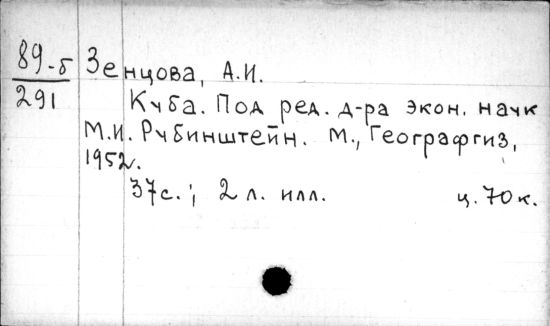 89-б Зенцова, А.И.
291
Куба. Под ред. д-ра экон. наук
М.И. Рубинштейн. М., Географгиз,
1952.
37с.; 2 л. илл. ц. 70к.